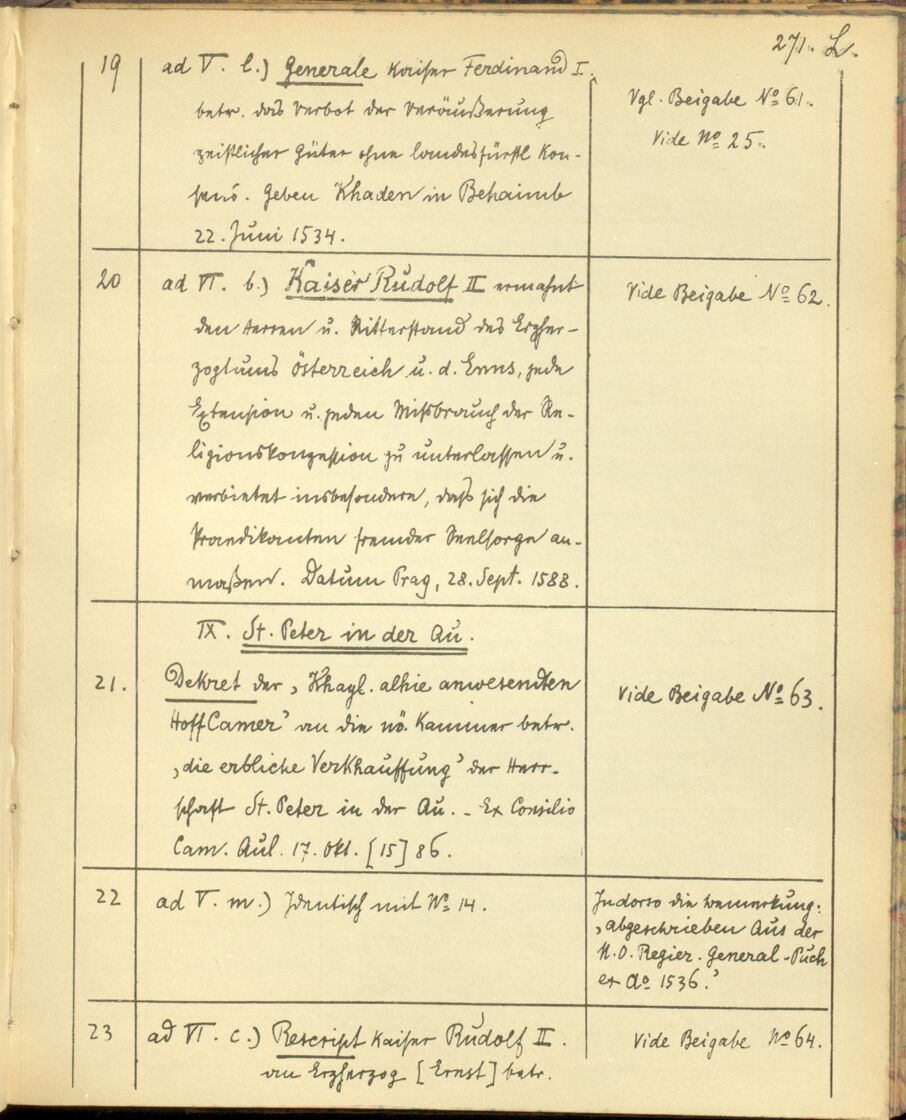 271. L.
19 ad V. l.) Generale Kaiser Ferdinand I.
betr. das Verbot der Veräußerung
geistlicher Güter ohne landesfürstl Kon-
sens. Geben Khaden in Behaimb
22. Juni 1534.
Vgl. Beigabe No 61.
Vide No 25.
20 ad VI. b.) Kaiser Rudolf II ermahnt
den Herren u. Ritterstand des Erzher-
zogtums Österreich u. d. Enns, jede
Extension u. jeden Missbrauch der Re-
ligionskonzession zu unterlassen u.
verbietet insbesondere, dass sich die
Praedikanten fremder Seelsorge an-
maßen. Datum Prag, 28. Sept. 1588.
Vide Beigabe No 62.
IX. St. Peter in der Au.
21. Dekret der ‚Khayl. alhie anwesendten
HoffCamer' an die nö. Kammer betr.
‚die erbliche Verkhauffung' der Herr-
schaft St. Peter in der Au. - Ex Consilio
Cam. Aul. 17. Okt. [15]86.
Vide Beigabe No 63.
22 ad V. m.) Identisch mit No 14.
In dorso die Bemerkung:
‚abgeschrieben Aus der
N.O. Regier. General-Puch
ex Ao 1536.'
23 ad VI. c.) Rescript Kaiser Rudolf II.
an Erzherzog [Ernst] betr.
Vide Beigabe No 64.